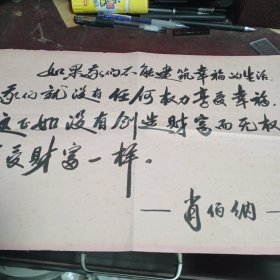 如果我们不能建筑幸福的生活
我们就没有任何权力享受幸福
这正如没有创造财富而无权
享受財富一样。
—肖伯纳—